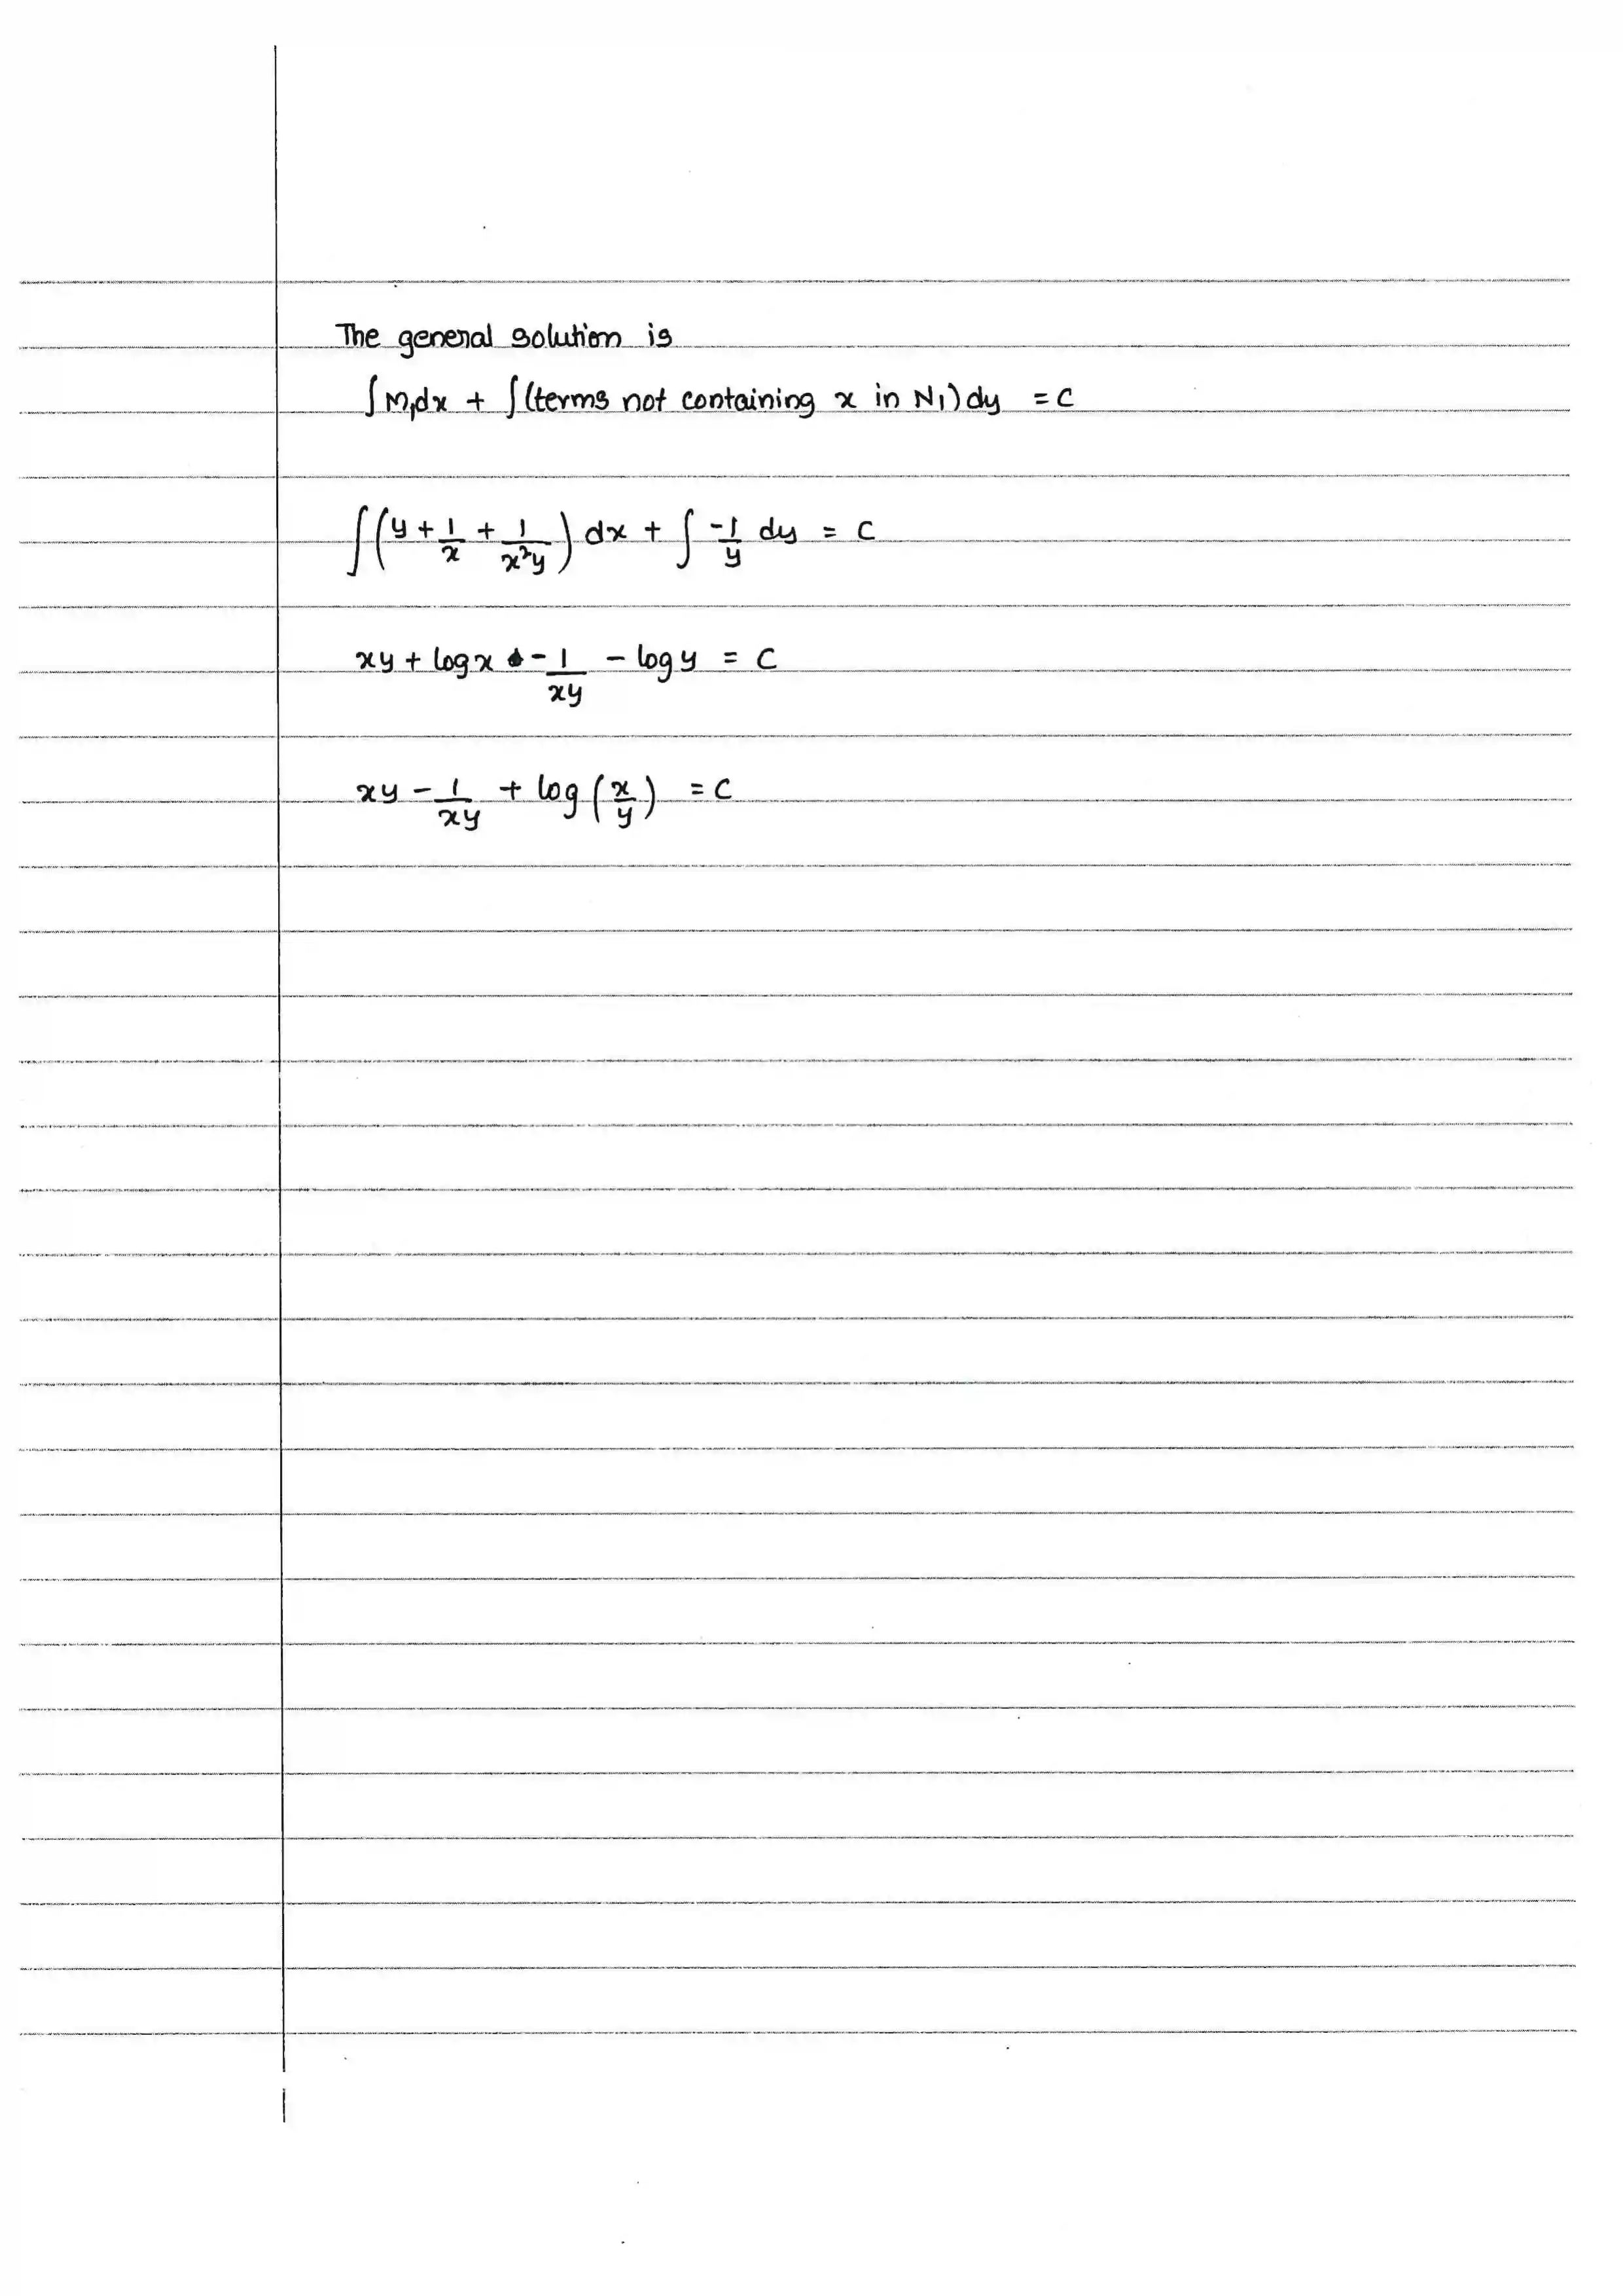 The general solution is
∫M₁dx + ∫(terms not containing x in N₁)dy = C
∫(y + 1/x + 1/(x²y)) dx + ∫ -1/y dy = C
xy + log x - 1/(xy) - log y = C
xy - 1/(xy) + log(x/y) = C